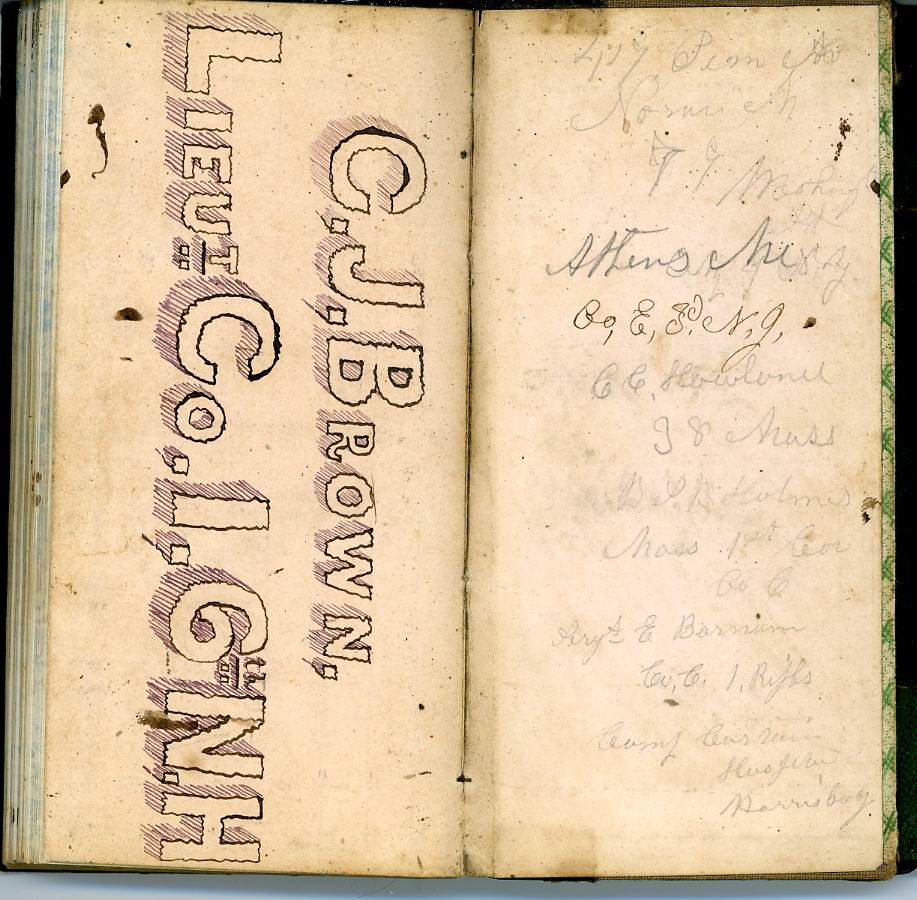 C. J. BROWN,
LIEUT Co. I. 6th N.H
417 Penn Av
Norwich
Athens Me
Co, E, 3d. N. J,
C C. Howland
38 Mass
Holmes
Mass 1st Cav
Co E
Sergt E Barnum
Co, C. 1, Rifls
Camp Curtain
Harrisburg